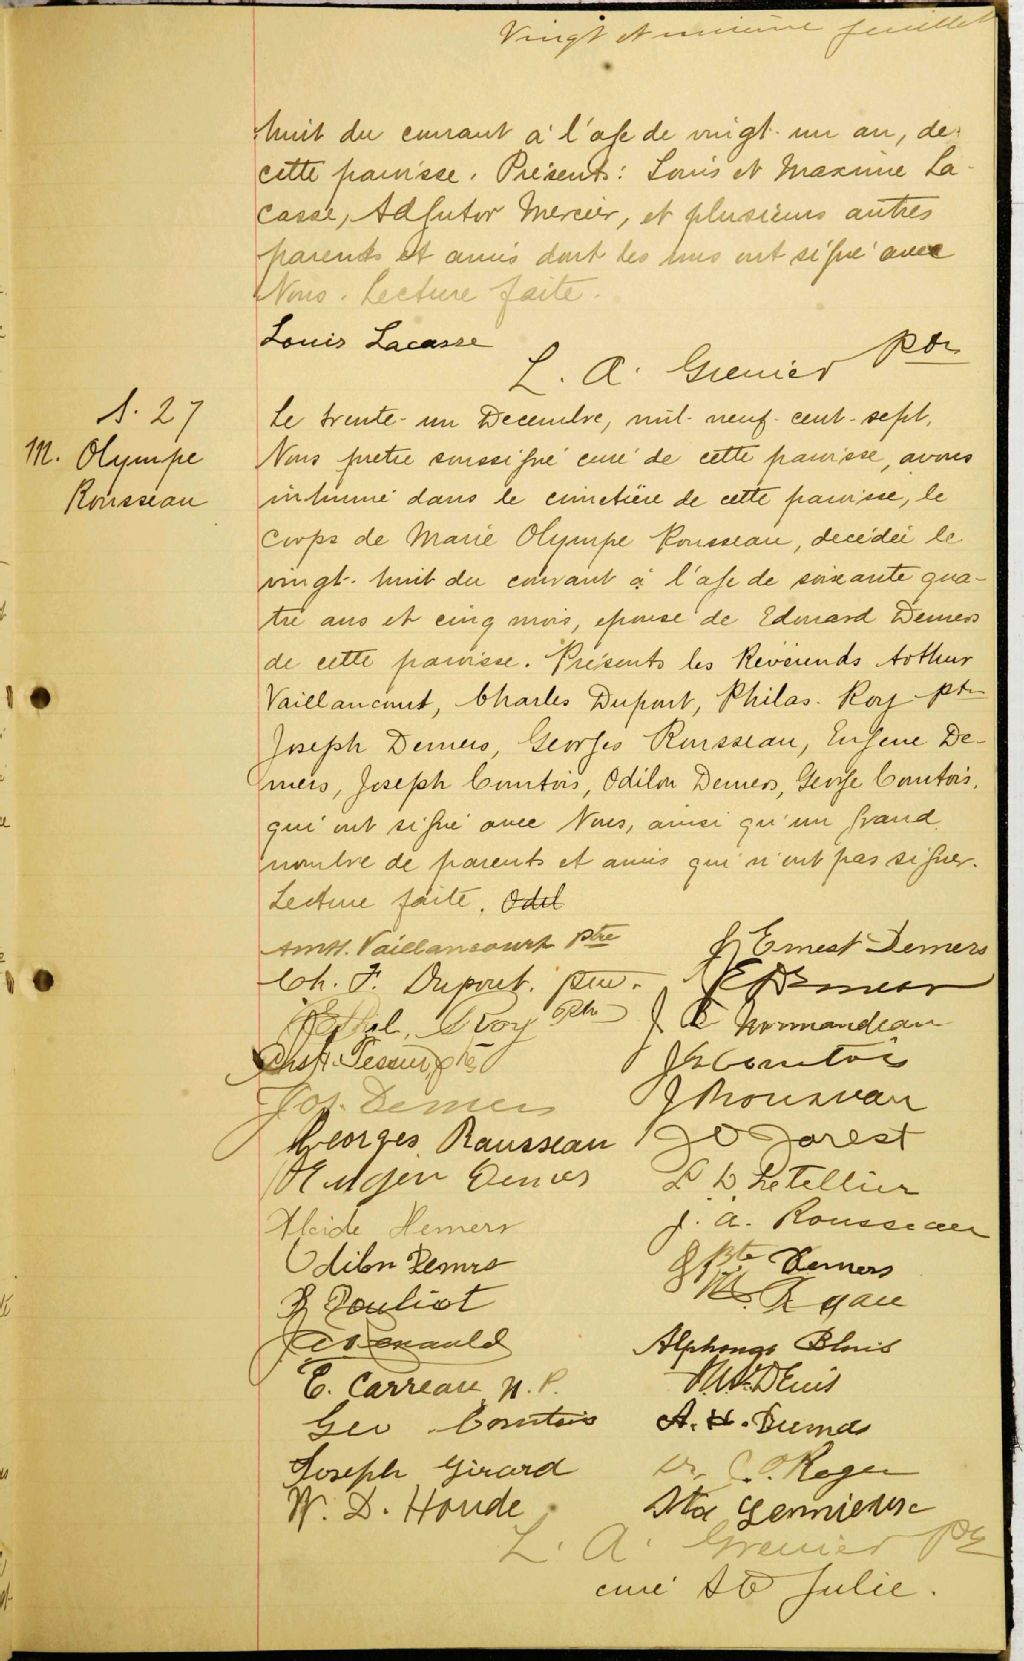 Vingt et unième feuillet
huit du courant à l'age de vingt-un an, de
cette paroisse. Présents: Louis et Maxime La-
casse, Adjutor Mercier, et plusieurs autres
parents et amis dont les uns ont signé avec
Nous. Lecture faite.
Louis Lacasse
L. A. Grenier ptre
S. 27
M. Olympe
Rousseau
Le trente-un Decembre, mil-neuf-cent-sept,
Nous pretre soussigné curé de cette paroisse, avons
inhumé dans le cimetière de cette paroisse, le
corps de Marie Olympe Rousseau, decédée le
vingt-huit du courant à l'age de soixante qua-
tre ans et cinq mois, epouse de Edouard Demers
de cette paroisse. Présents les Révérends Arthur
Vaillancourt, Charles Dupont, Philas. Roy ptre
Joseph Demers, Georges Rousseau, Eugene De-
mers, Joseph Comtois, Odilon Demers, George Comtois,
qui ont signé avec Nous, ainsi qu'un grand
nombre de parents et amis qui n'ont pas signer.
Lecture faite. Odil
Vaillancourt ptre
J Ernest Demers
Ch. F. Dupont. ptre.
E Demers
Phil. Roy Ptre
J E Normandeau
Tessier ptre
J E Comtois
Jos. Demers
J Rousseau
Georges Rousseau
J O Forest
Eugèn Demers
L D Letellier
Alcide Demers
J. A. Rousseau
Odilon Demrs
J Bte Demers
J Pouliot
Renauld
Alphonse Blais
E. Carreau N. P.
Denis
Geo Comtois
A. H. Dumas
Joseph Girard
Dr. C. O. Roger
W. D. Houde
L. A. Grenier Ptre
curé Ste Julie.